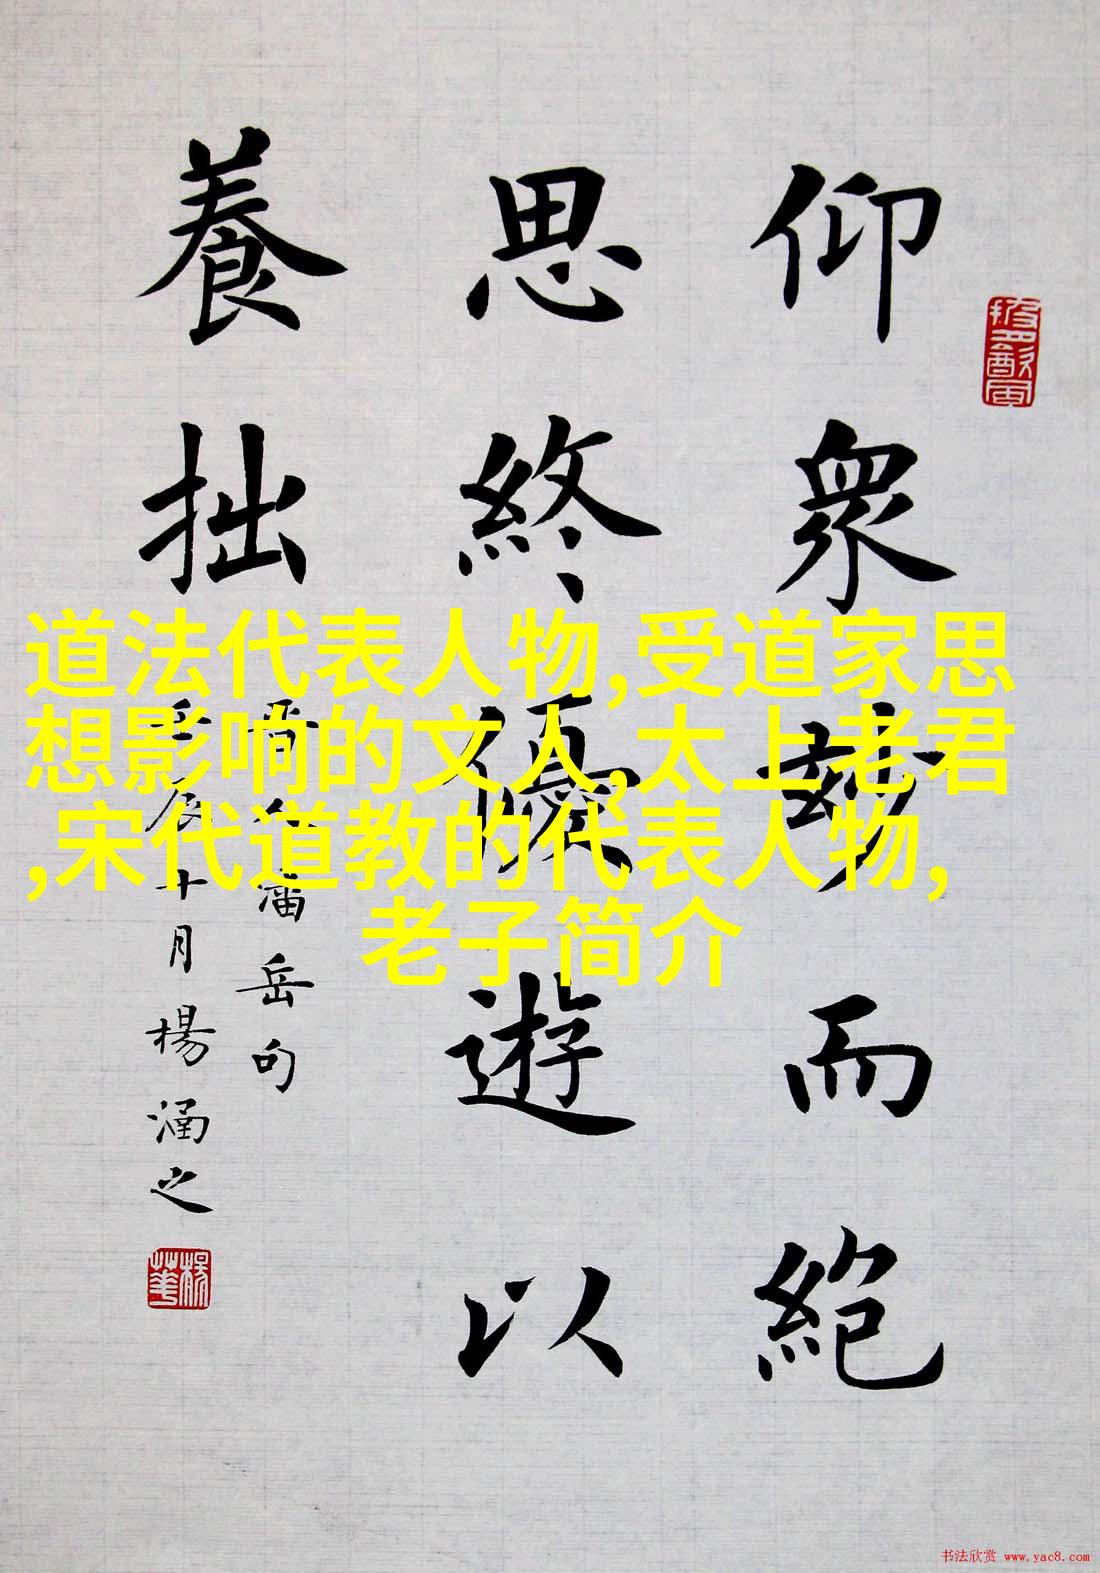 仰衆玅而絶
思終優遊以
養拙
晋人潘岳句
壬辰十月楊涵之
道法代表人物,受道家思
想影响的文人,太上老君
,宋代道教的代表人物,
老子简介
书法欣赏 www.yac8.com